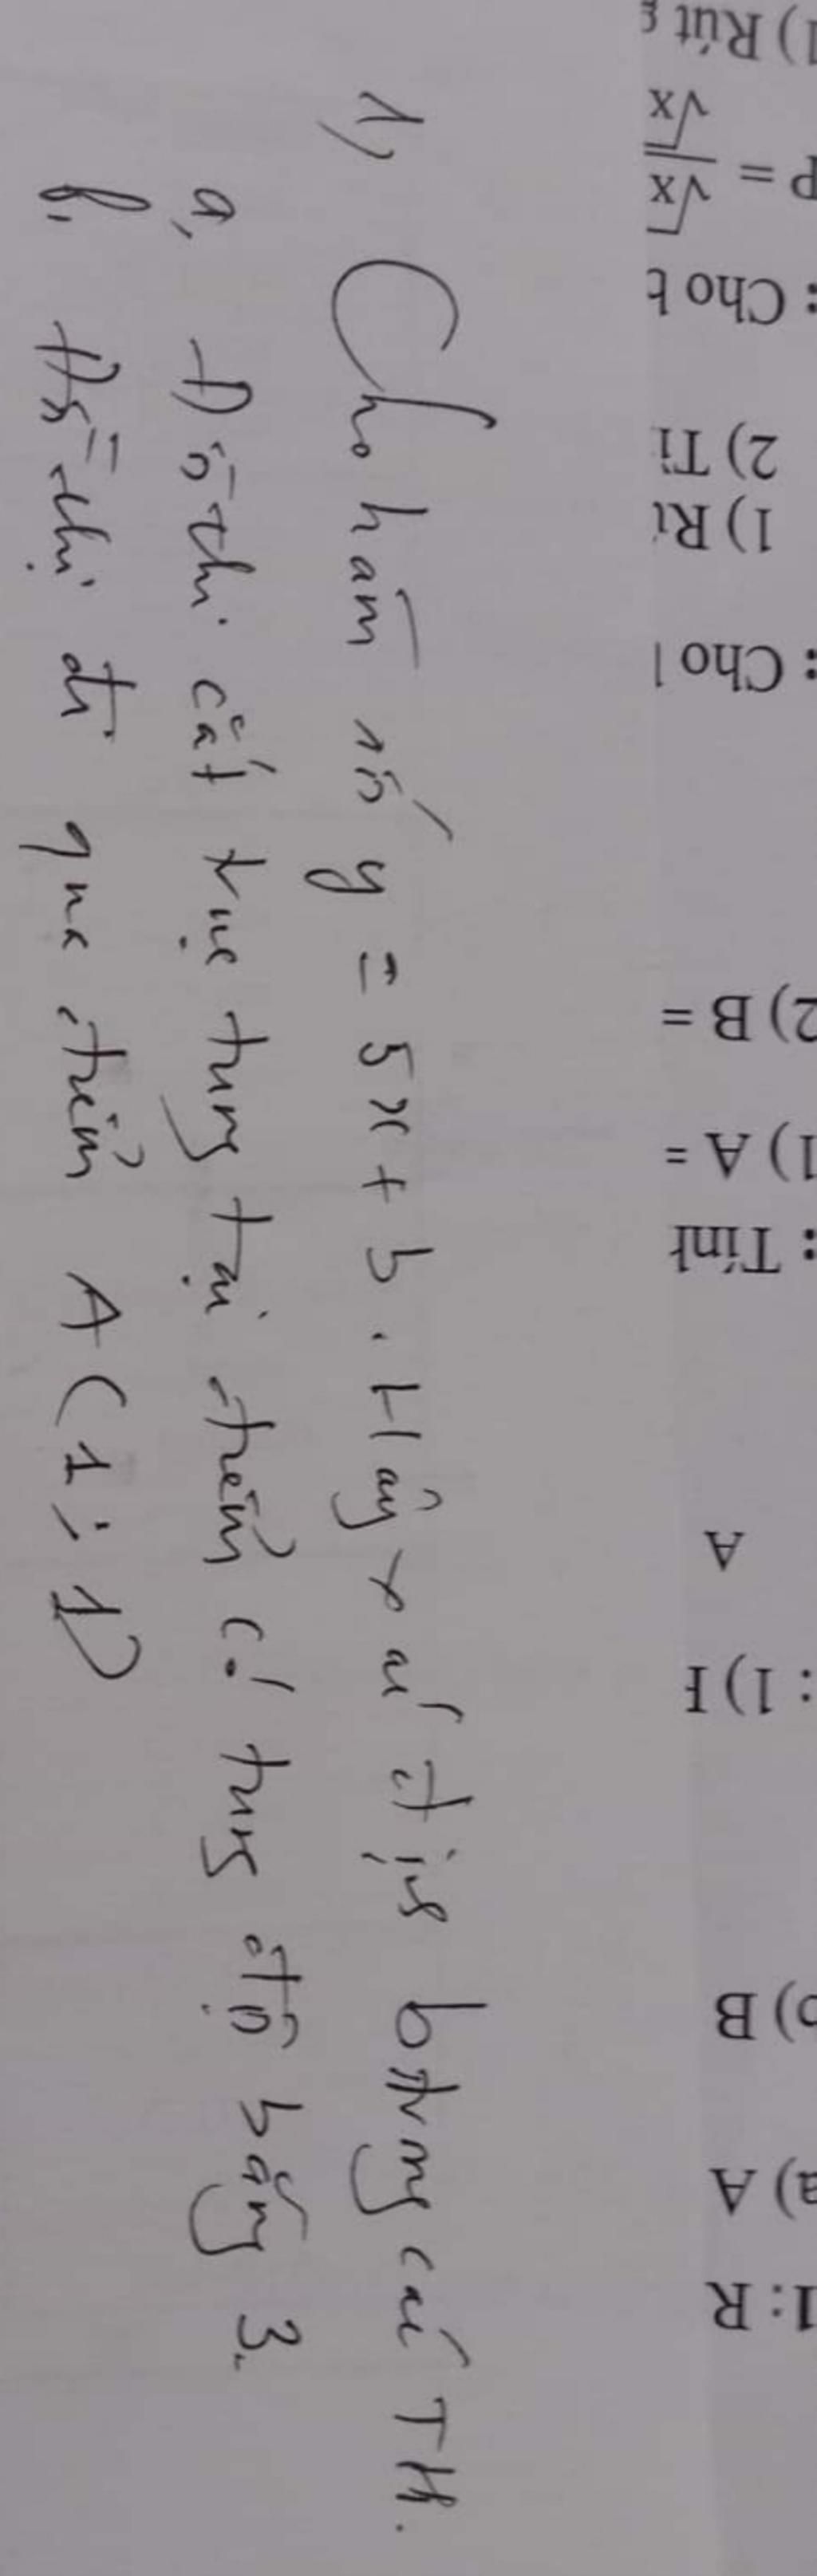 1) Cho hàm số y = 5x + b. Hãy xác định b trong các TH.
a, Đồ thị cắt trục tung tại điểm có tung độ bằng 3.
b, Đồ thị đi qua điểm A (1; 1)
1: R
a) A
b) B
: 1) 
A
: Tính
1) A =
2) B =
: Cho
1) Rú
2) Tì
: Cho b
P = √x
√x
1) Rút g